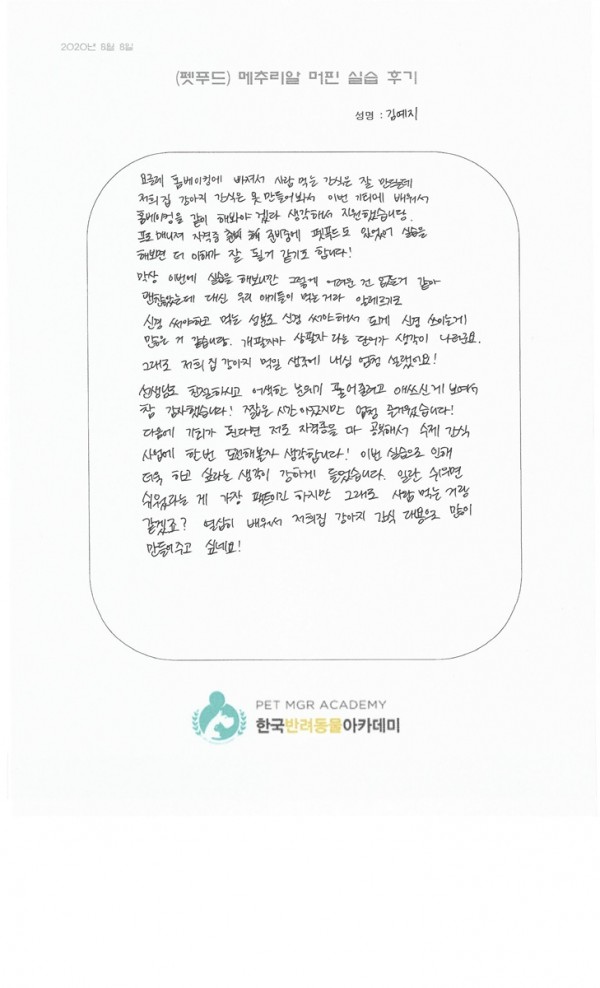 2020년 6월 6일
(펫푸드) 메추리알 머핀 실습 후기
성명 : 김예지
요즘에 홈베이킹에 빠져서 사람 먹는 간식은 잘 만드는데
저희 집 강아지 간식은 못 만들어봐서 이번 기회에 배워서
홈베이킹을 같이 해봐야 겠다 생각해서 지원했습니당.
프로매니저 자격증 준비중에 펫푸드도 있었어서 실습을
해보면 더 이해가 잘 될거 같기도 합니다!
막상 이번에 실습을 해보니깐 그렇게 어려운 건 없는거 같아
괜찮았는데 대신 우리 애기들이 먹는거라 알레르기도
신경 써야하고 먹는 성분도 신경 써야해서 되게 신경 쓰이는게
많은 거 같습니당. 개팔자가 상팔자 라는 단어가 생각이 나더군요.
그래도 저희 집 강아지 먹일 생각에 내심 엄청 설렜어요!
선생님도 친절하시고 어색한 분위기 풀어주려고 애쓰신게 보여서
참 감사했습니다! 짧은 시간 이었지만 엄청 즐거웠습니다!
다음에 기회가 된다면 저도 자격증을 마 공부해서 수제 간식
사업에 한번 도전해볼까 생각합니다! 이번 실습으로 인해
더욱 하고 싶다는 생각이 강하게 들었습니다. 일단 쉬우면
쉬웠다는 게 가장 팩트이긴 하지만 그래도 사람 먹는 거랑
같겠죠? 열심히 배워서 저희집 강아지 간식 대용으로 많이
만들어주고 싶네요!
PET MGR ACADEMY
한국반려동물아카데미